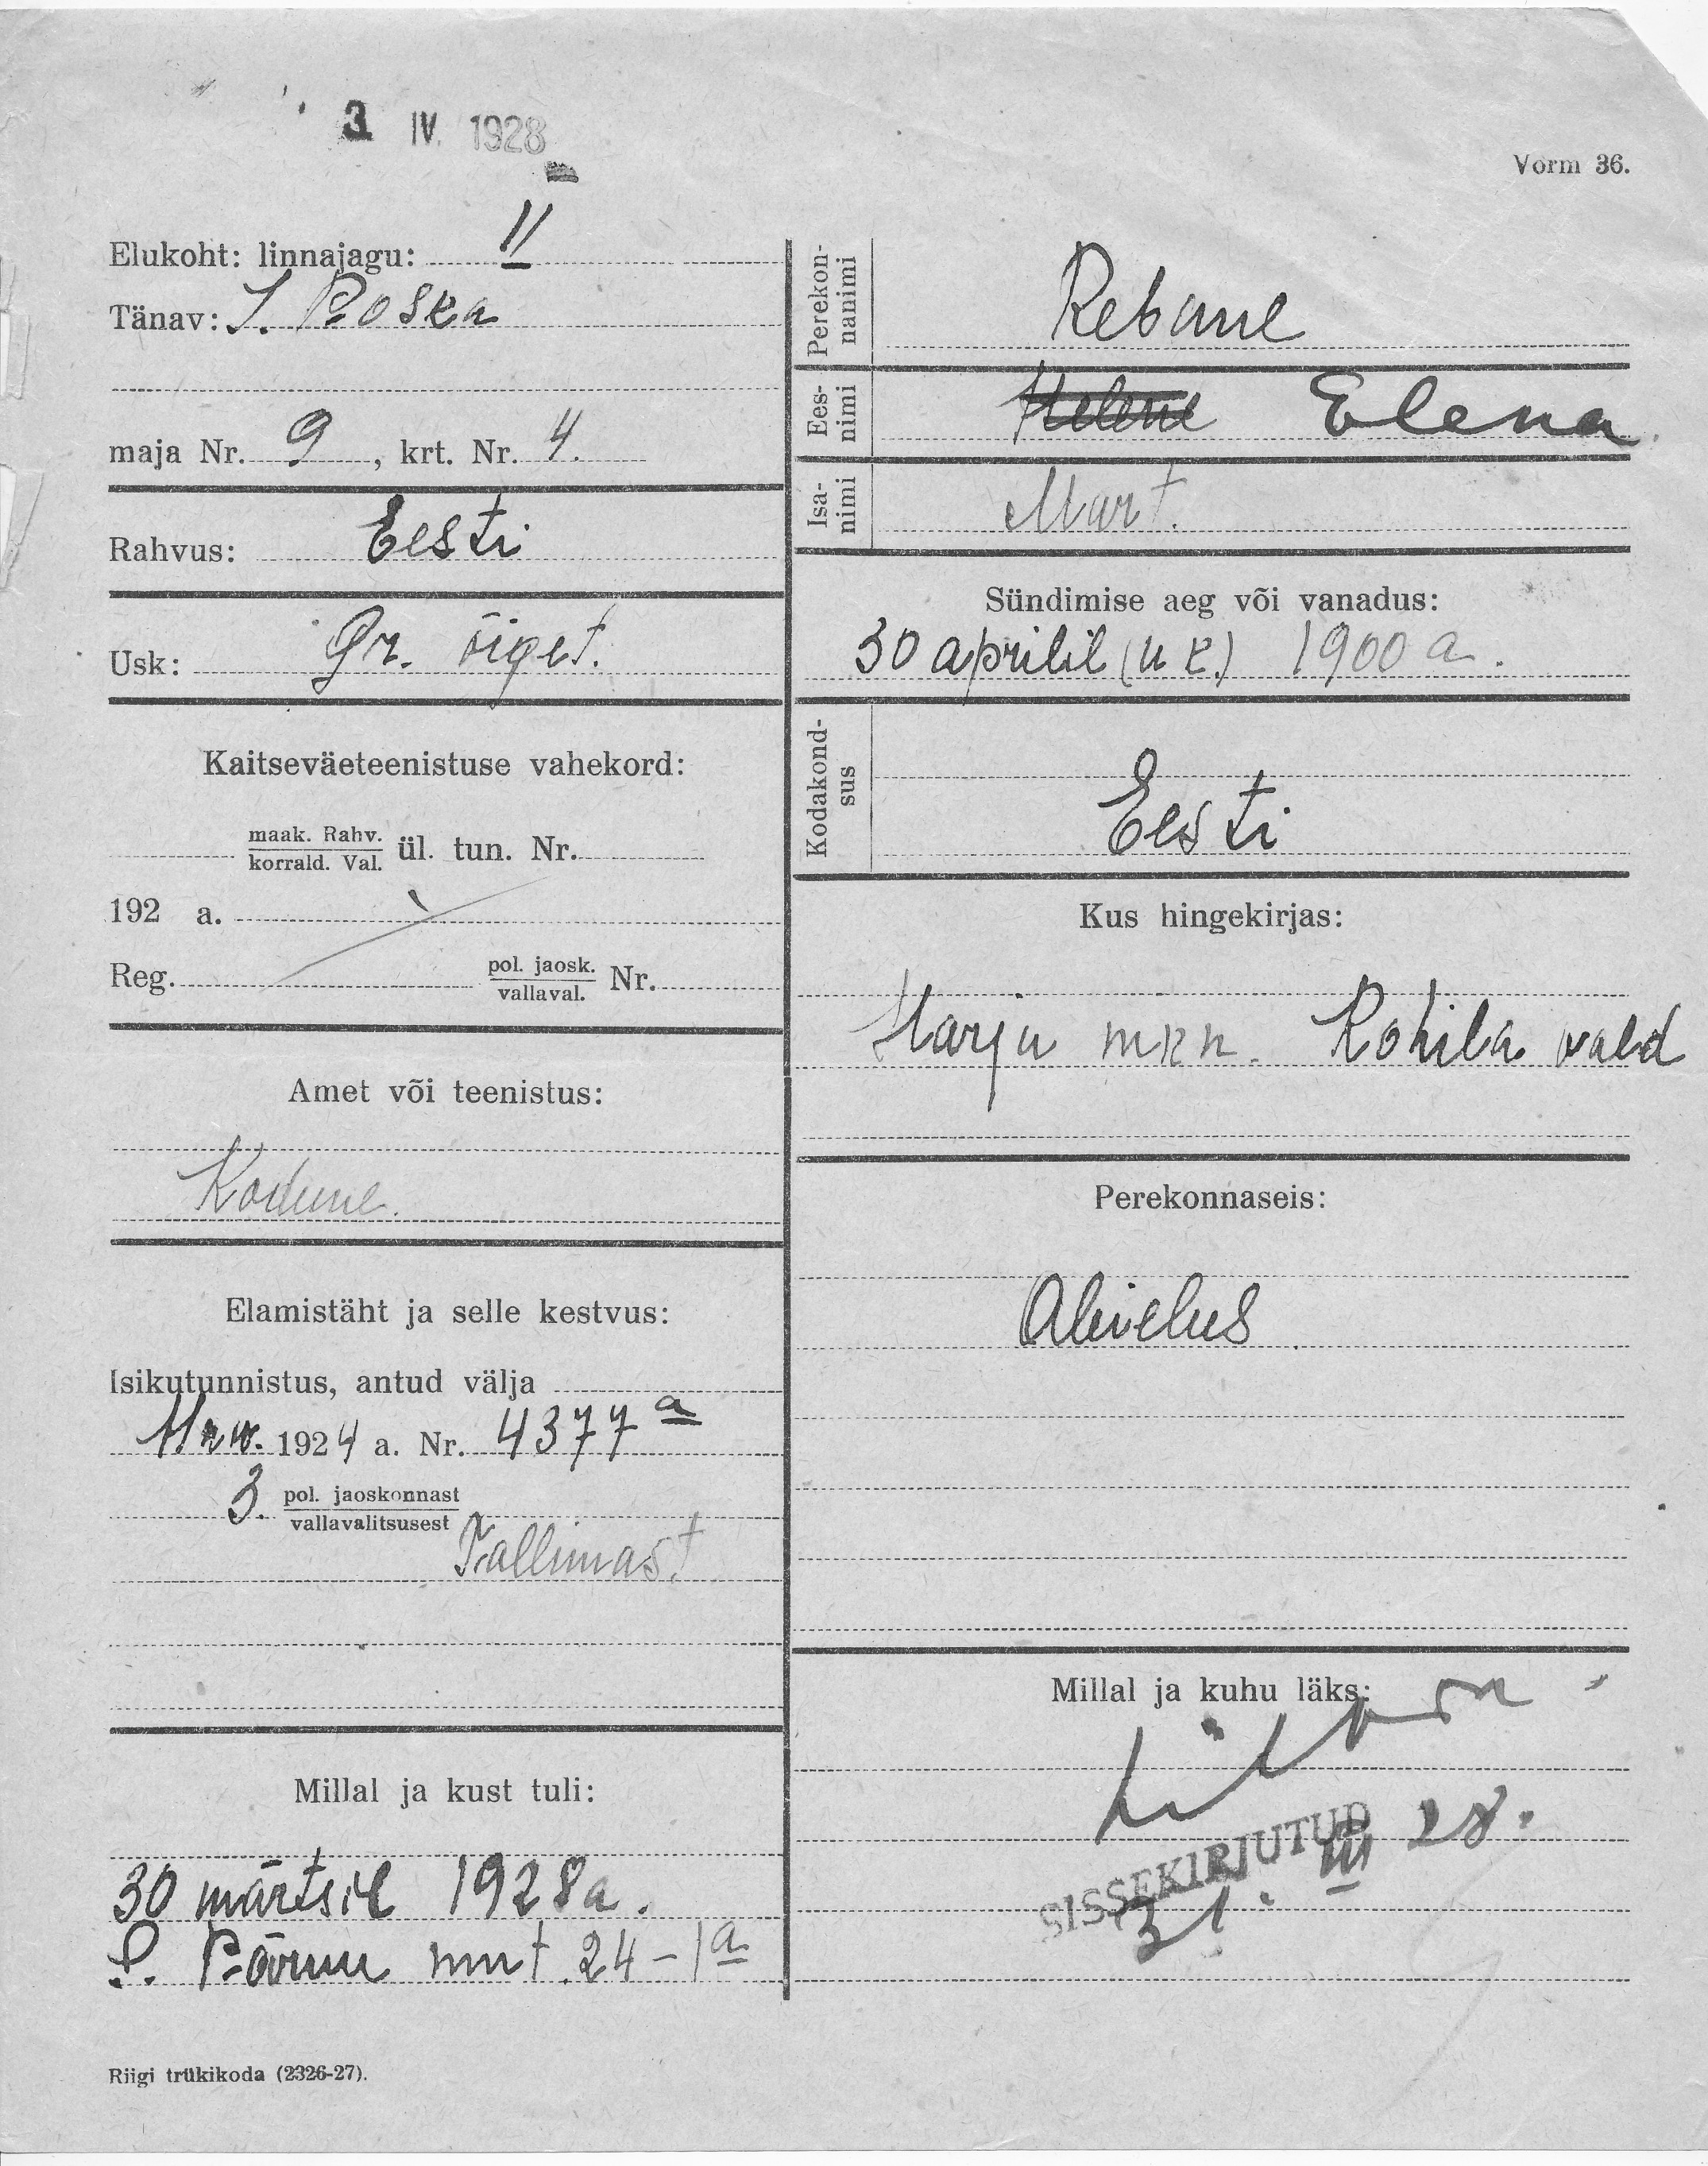 3 IV. 1928
Vorm 36.
Elukoht: linnajagu: II
Tänav: J. Poska
maja Nr. 9, krt. Nr. 4.
Rahvus: Eesti
Usk: Gr. õiget.
Kaitseväeteenistuse vahekord:
maak. Rahv.
korrald. Val. ül. tun. Nr.
192 a.
Reg. pol. jaosk.
vallaval. Nr.
Amet või teenistus:
Kodune.
Elamistäht ja selle kestvus:
Isikutunnistus, antud välja
1924 a. Nr. 4377 a
3. pol. jaoskonnast
vallavalitsusest
Tallinnast
Millal ja kust tuli:
30 märtsil 1928 a.
S. Pärnu mnt. 24 – 1a
Riigi trükikoda (2326-27).
Perekon-
nanimi
Rebane
Ees-
nimi
Helene Elena
Isa-
nimi
Mart.
Sündimise aeg või vanadus:
30 aprilil (u k.) 1900 a.
Kodakond-
sus
Eesti
Kus hingekirjas:
Harju mkn. Kohila vald
Perekonnaseis:
Abielus
Millal ja kuhu läks:
SISSEKIRJUTUD
31. III 28.